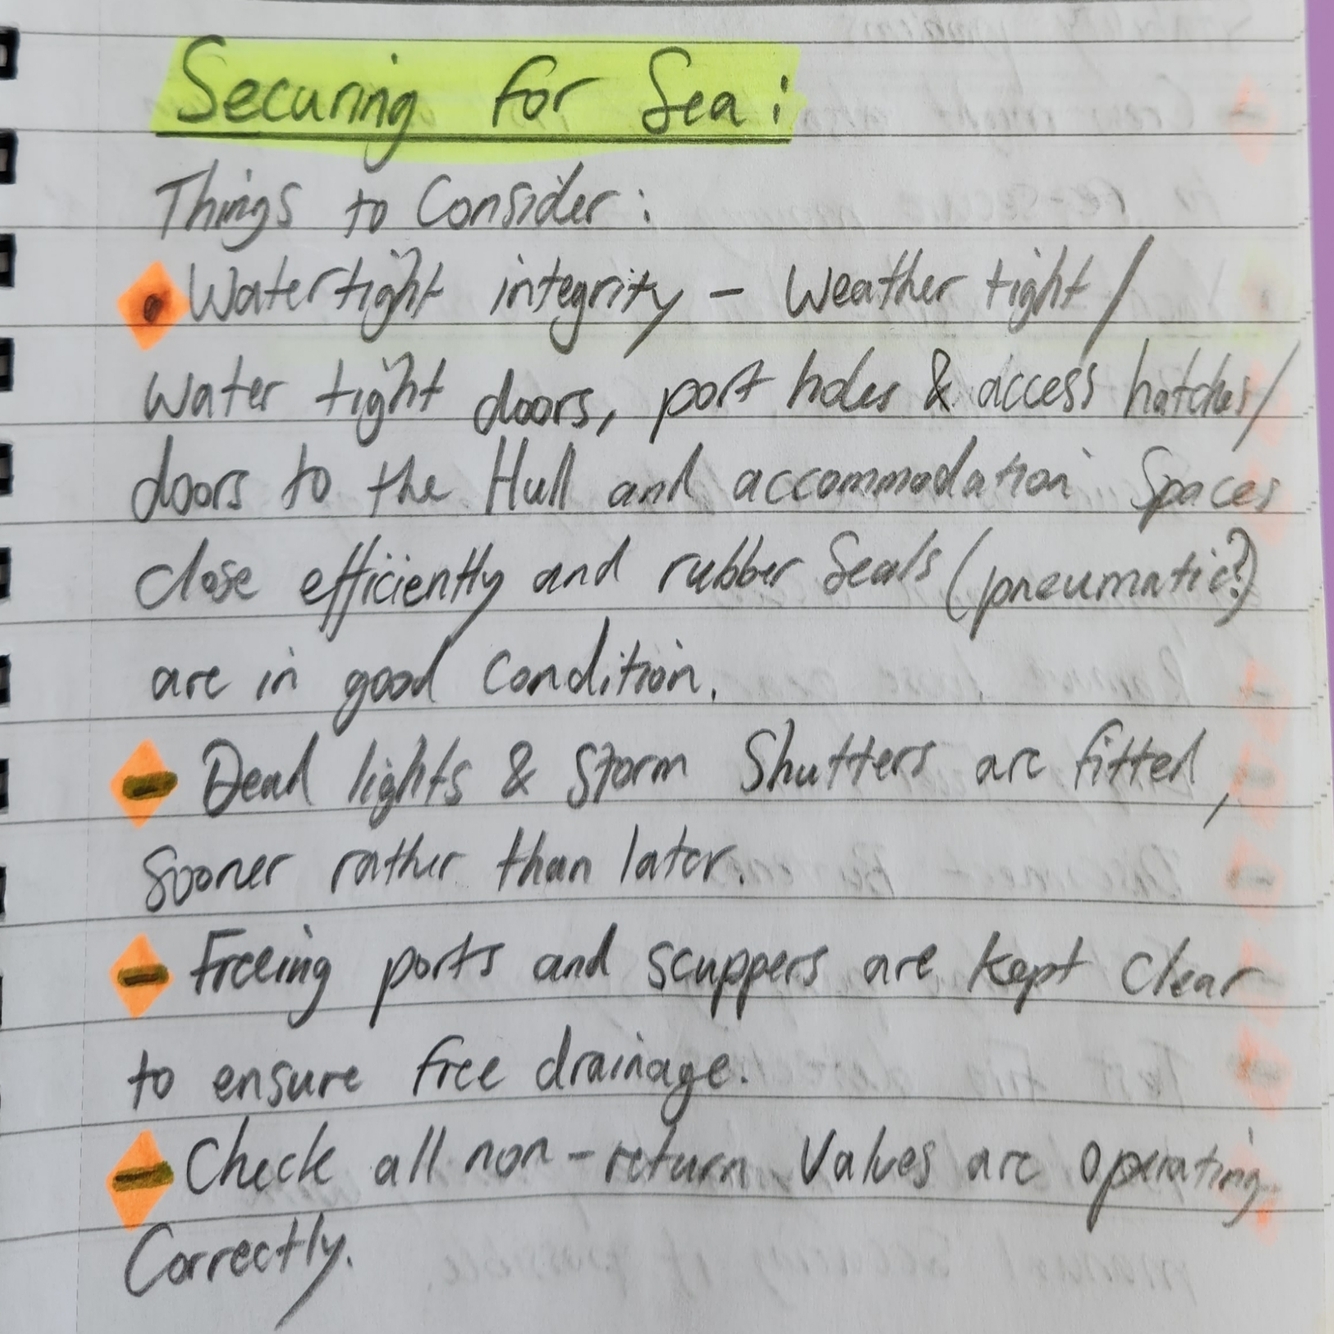 Securing for Sea:
Things to Consider:
• Watertight integrity - Weather tight/
Water tight doors, port holes & access hatches/
doors to the Hull and accommodation Spaces
close efficiently and rubber Seals (pneumatic?)
are in good Condition.
- Dead lights & Storm Shutters are fitted,
Sooner rather than later.
- Freeing ports and scuppers are kept Clear
to ensure free drainage.
- Check all non-return Valves are operating
Correctly.